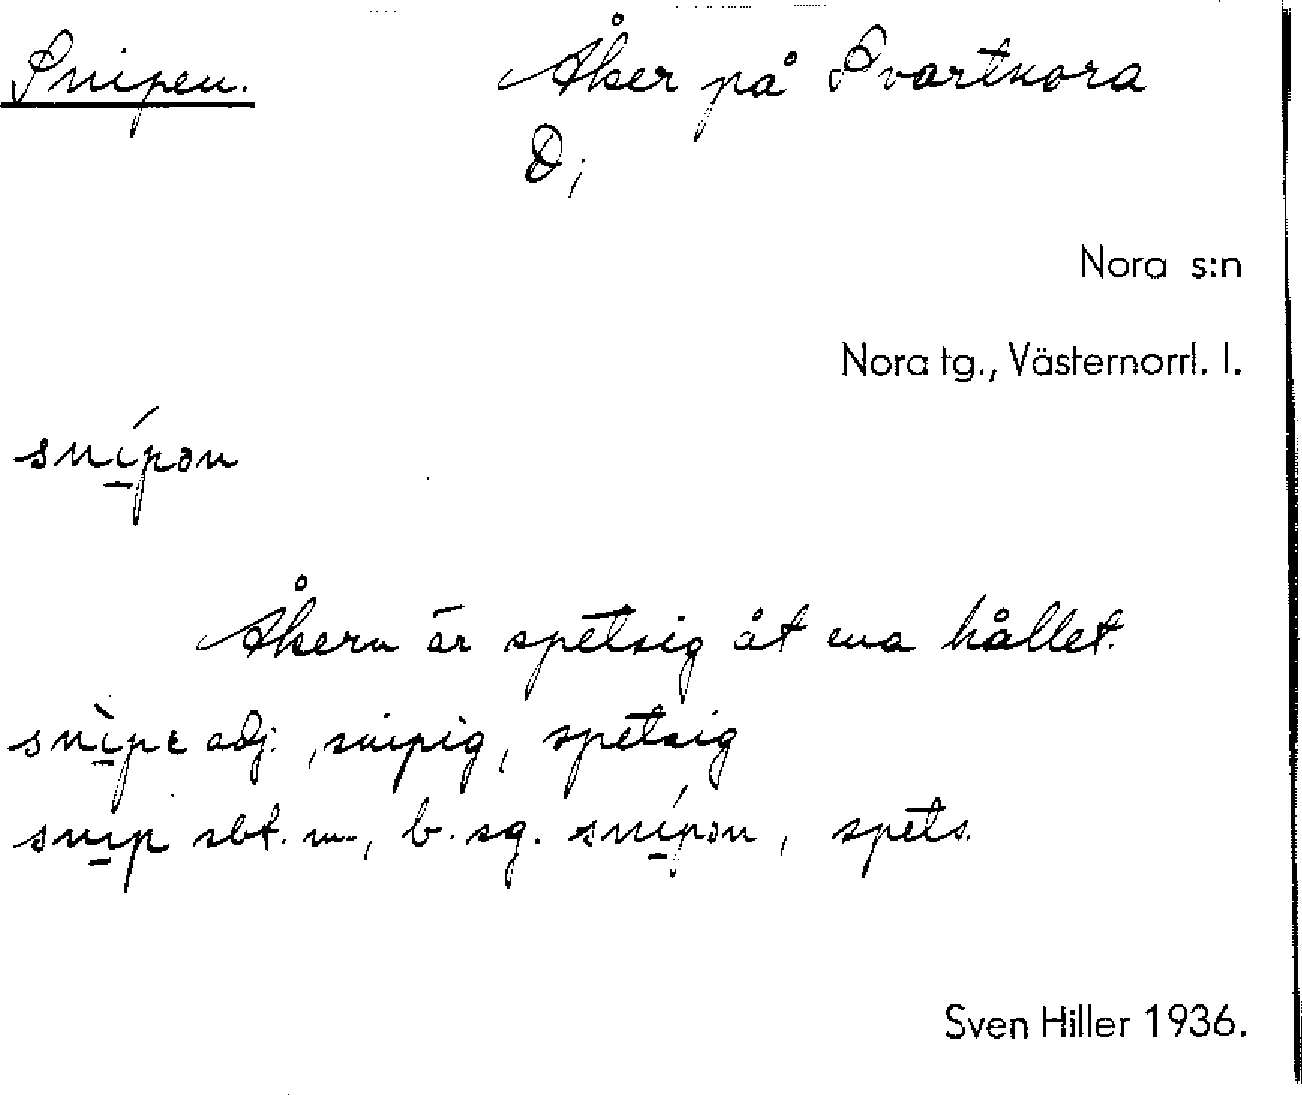 Snipen. Åker på Svartnora
D;
Nora s:n
Nora tg., Västernorrl. l.
sní̲pən
Åkern är spetsig åt ena hållet.
snì̲pɛ adj. , snipig, spetsig
sni̲p sbt. m., b. sg. sní̲pən, spets.
Sven Hiller 1936.